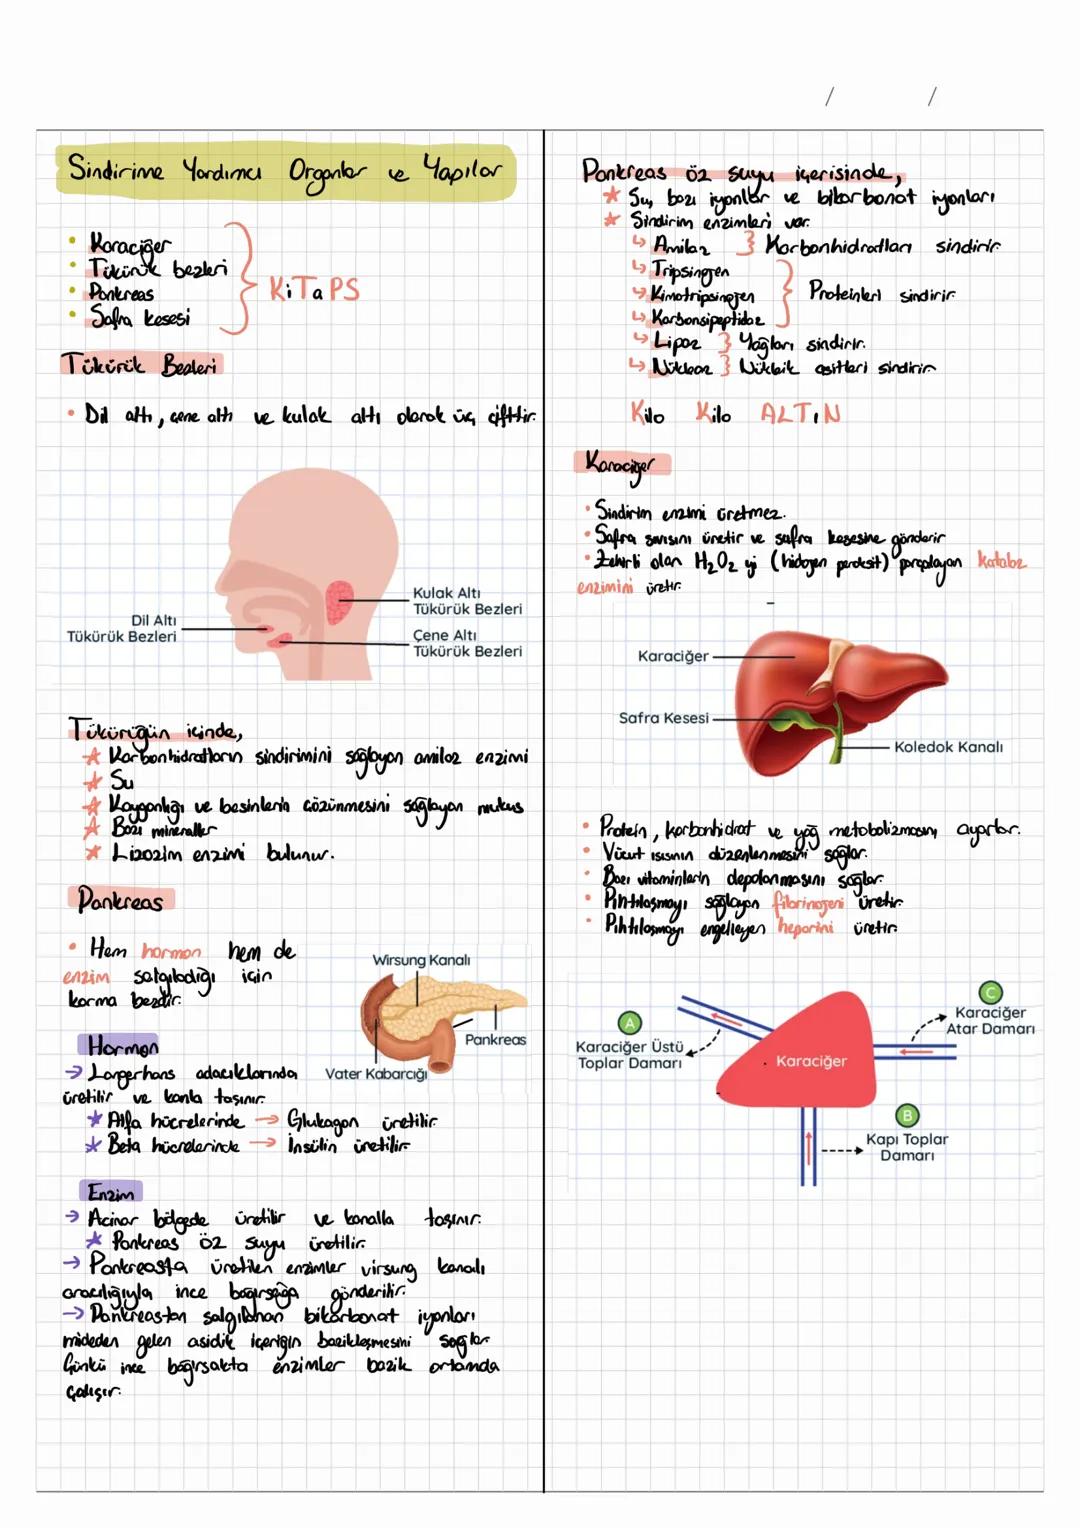 / /
Sindirime Yardımcı Organlar ve Yapılar
• Karaciğer
• Tükürük bezleri
• Pankreas
• Safra kesesi
KiTaPS
Tükürük Bezleri
• Dil altı, çene altı ve kulak altı olarak üç çifttir.
Dil Altı
Tükürük Bezleri
Kulak Altı
Tükürük Bezleri
Çene Altı
Tükürük Bezleri
Tükürüğün içinde,
★ Karbonhidratların sindirimini sağlayan amilaz enzimi
★ Su
★ Kayganlığı ve besinlerin çözünmesini sağlayan mukus
★ Bazı mineraller
★ Lizozim enzimi bulunur.
Pankreas
• Hem hormon hem de
enzim salgıladığı için
karma bezdir.
Wirsung Kanalı
Pankreas
Vater Kabarcığı
Hormon
→ Langerhans adacıklarında
üretilir ve kanla taşınır.
★ Alfa hücrelerinde → Glukagon üretilir.
★ Beta hücrelerinde → İnsülin üretilir.
Enzim
→ Acinar bölgede üretilir ve kanalla taşınır.
★ Pankreas öz suyu üretilir.
→ Pankreasta üretilen enzimler virsung kanalı
aracılığıyla ince bağırsağa gönderilir.
→ Pankreastan salgılanan bikarbonat iyonları
mideden gelen asidik içeriğin bazikleşmesini sağlar.
Çünkü ince bağırsakta enzimler bazik ortamda
çalışır.
Pankreas öz suyu içerisinde,
★ Su, bazı iyonlar ve bikarbonat iyonları
★ Sindirim enzimleri var.
↳ Amilaz } Karbonhidratları sindirir.
↳ Tripsinojen
↳ Kimotripsinojen } Proteinleri sindirir.
↳ Karbonsipeptidaz
↳ Lipaz } Yağları sindirir.
↳ Nükleaz } Nükleik asitleri sindirir.
Kilo Kilo ALTıN
Karaciğer
• Sindirim enzimi üretmez.
• Safra sıvısını üretir ve safra kesesine gönderir
• Zehirli olan H₂O₂ yi (hidojen peroksit) parçalayan katalaz
enzimini üretir.
Karaciğer
Safra Kesesi
Koledok Kanalı
• Protein, karbonhidrat ve yağ metabolizmasını ayarlar.
• Vücut ısısının düzenlenmesini sağlar.
• Bazı vitaminlerin depolanmasını sağlar.
• Pıhtılaşmayı sağlayan fibrinojeni üretir.
• Pıhtılaşmayı engelleyen heparini üretir.
A
Karaciğer Üstü
Toplar Damarı
Karaciğer
C
Karaciğer
Atar Damarı
B
Kapı Toplar
Damarı